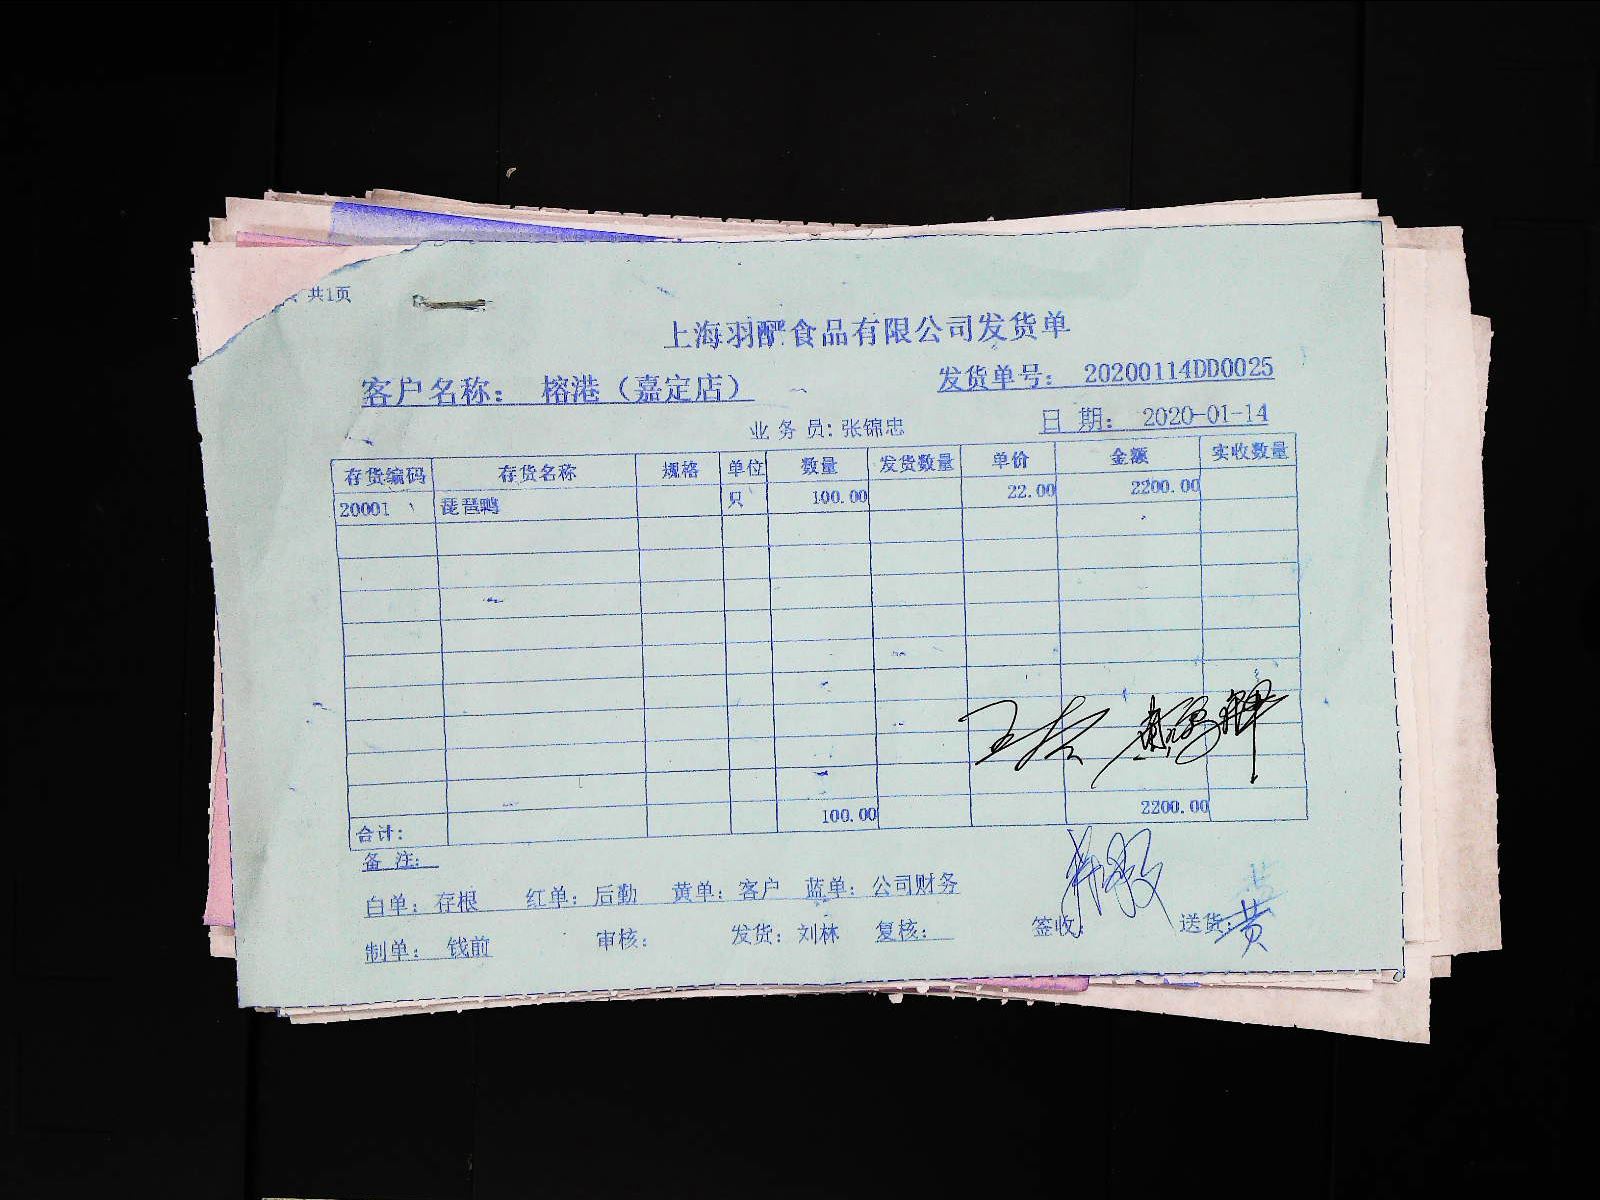 共1页
上海羽酽食品有限公司发货单
客户名称： 榕港（嘉定店） 发货单号： 20200114DD0025
业 务 员: 张锦忠 日 期： 2020-01-14
存货编码 存货名称 规格 单位 数量 发货数量 单价 金额 实收数量
20001 琵琶鸭 只 100.00 22.00 2200.00
合计： 100.00 2200.00
备 注：
白单： 存根 红单： 后勤 黄单： 客户 蓝单： 公司财务
制单： 钱前 审核： 发货： 刘林 复核： 签收： 送货： 黄